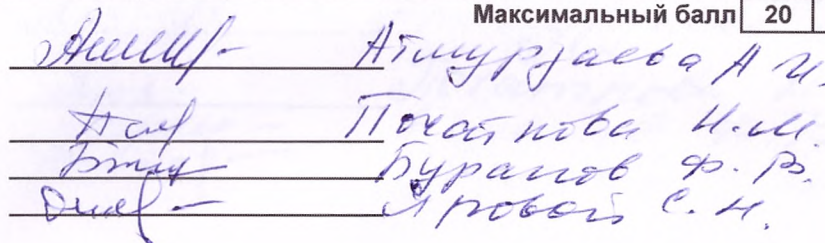 Максимальный балл 20
Атмурзаева А И.
Почапнова Н.М.
Буранов Ф. В.
Яровой С. Н.